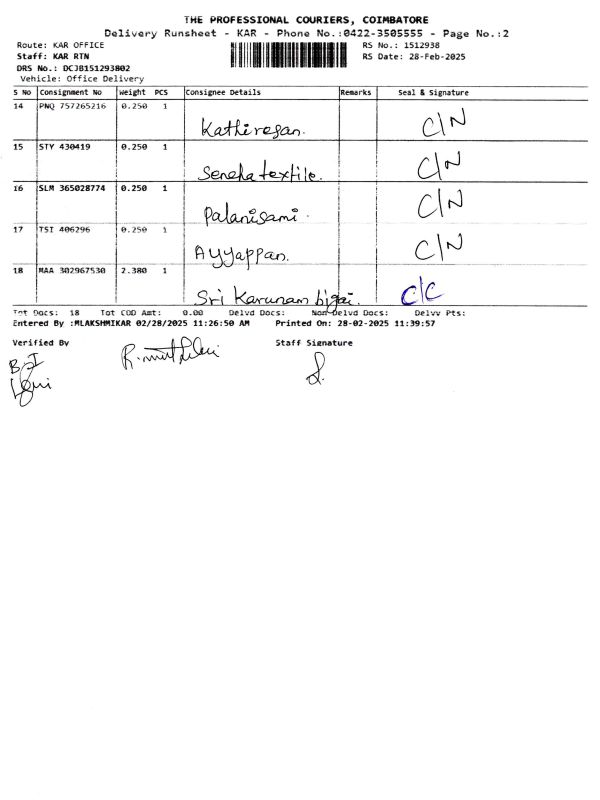 THE PROFESSIONAL COURIERS, COIMBATORE
Delivery Runsheet - KAR - Phone No.:0422-3505555 - Page No.:2
Route: KAR OFFICE RS No.: 1512938
Staff: KAR RTN RS Date: 28-Feb-2025
DRS No.: DCJB151293802
Vehicle: Office Delivery
S No Consignment No Weight PCS Consignee Details Remarks Seal & Signature
14 PNQ 757265216 0.250 1
Kathiresan. C/N
15 STY 430419 0.250 1
Seneha textile. C/N
16 SLM 365028774 0.250 1
Palanisami. C/N
17 TSI 406296 0.250 1
Ayyappan. C/N
18 MAA 302967530 2.380 1
Sri Karunambigai. C/C
Tot Docs: 18 Tot COD Amt: 0.00 Delvd Docs: Non-Delvd Docs: Delvv Pts:
Entered By :MLAKSHMIKAR 02/28/2025 11:26:50 AM Printed On: 28-02-2025 11:39:57
Verified By Staff Signature